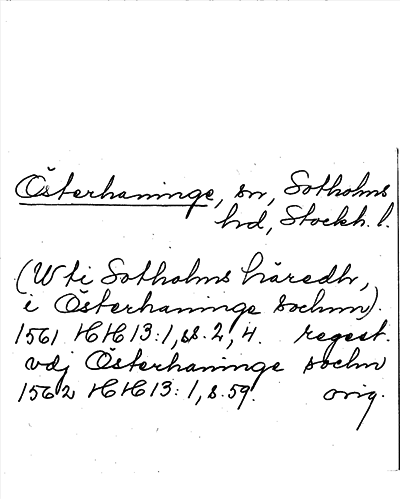 Österhaninge, sn, Sotholms
hd, Stockh. l.
(W ti Sotholms häredh,
i Österhaninge sochnn).
1561 HH 13:1, ss. 2, 4. regest.
vdj Österhaninge sochn
1562 HH 13:1, s. 59. orig.